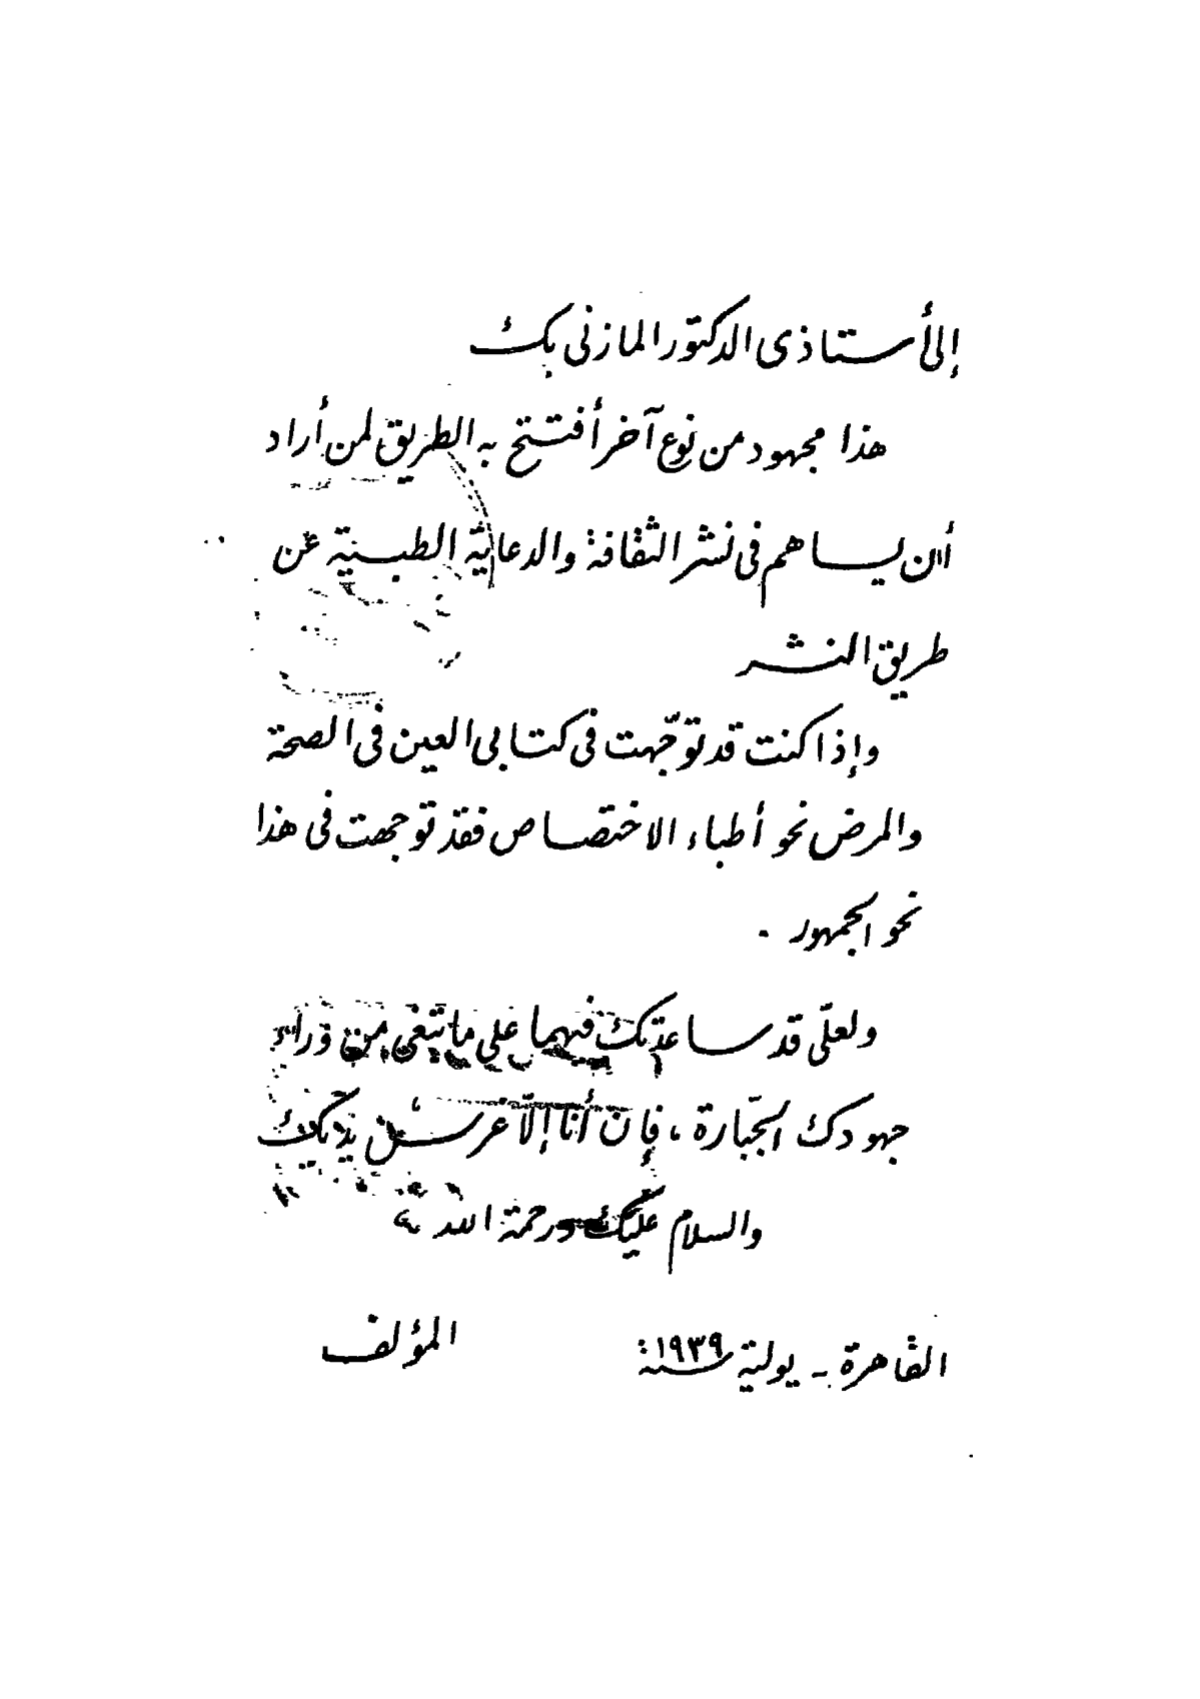 إلى أستاذى الدكتور المازنى بك
هذا مجهود من نوع آخر أفتتح به الطريق لمن أراد
أن يساهم فى نشر الثقافة والدعاية الطبية عن
طريق النشر
وإذا كنت قد توجّهت فى كتابى العين فى الصحة
والمرض نحو أطباء الاختصاص فقد توجهت فى هذا
نحو الجمهور .
ولعلّى قد ساعدتك فيهما على ما تبغى من وراء
جهودك الجبّارة ، فإن أنا إلّا غرس يديك
والسلام عليك ورحمة الله
القاهرة - يولية سنة ١٩٣٩
المؤلف